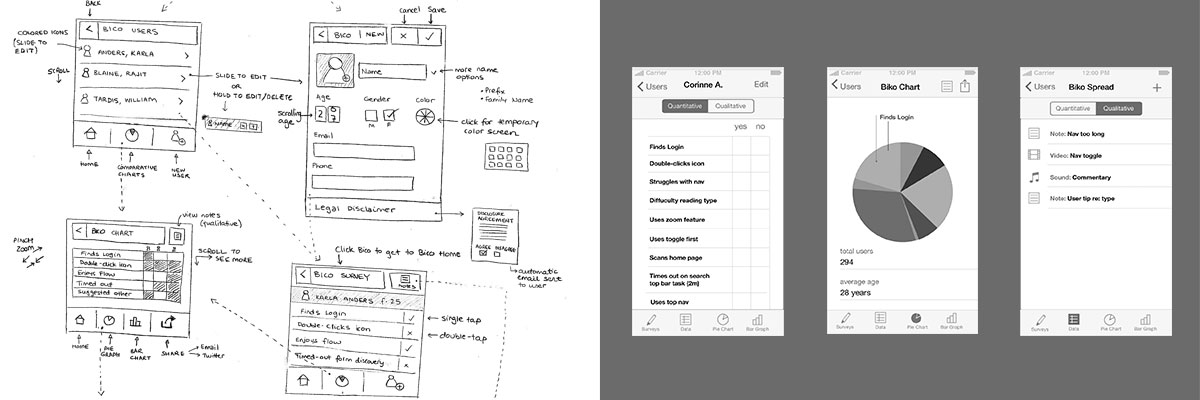 BACK
BICO USERS
COLORED ICONS
(SLIDE TO
EDIT)
ANDERS, KARLA
SCROLL
BLAINE, RAJIT
TARDIS, WILLIAM
SLIDE TO EDIT
OR
HOLD TO EDIT/DELETE
HOME
COMPARATIVE
CHARTS
NEW
USER
Cancel
Save
BICO
NEW
Name
more name
options
• Prefix
• Family Name
Age
Gender
Color
scrolling
age
M
F
click for temporary
color screen
Email
Phone
Legal Disclaimer
DISCLOSURE
AGREEMENT
AGREE DISAGREE
automatic
email sent
to user
view notes
(qualitative)
BICO CHART
PINCH
ZOOM
SCROLL TO
SEE MORE
Finds Login
Double-click icon
Enjoys Flow
Timed out
Suggested other
HOME
PIE
GRAPH
BAR
CHART
SHARE
Email
Twitter
Click Bico to get to Bico Home
BICO SURVEY
NOTES
KARLA ANDERS f. 25
Finds Login
single tap
Double-Clicks Icon
double-tap
Enjoys flow
Timed-out form discovery
Carrier
12:00 PM
Users
Corinne A.
Edit
Quantitative
Qualitative
yes
no
Finds Login
Double-clicks icon
Struggles with nav
Diffuculty reading type
Uses zoom feature
Uses toggle first
Scans home page
Times out on search
top bar task (2m)
Uses top nav
Surveys
Data
Pie Chart
Bar Graph
Carrier
12:00 PM
Users
Biko Chart
Finds Login
total users
294
average age
28 years
Surveys
Data
Pie Chart
Bar Graph
Carrier
12:00 PM
Users
Biko Spread
Quantitative
Qualitative
Note: Nav too long
Video: Nav toggle
Sound: Commentary
Note: User tip re: type
Surveys
Data
Pie Chart
Bar Graph